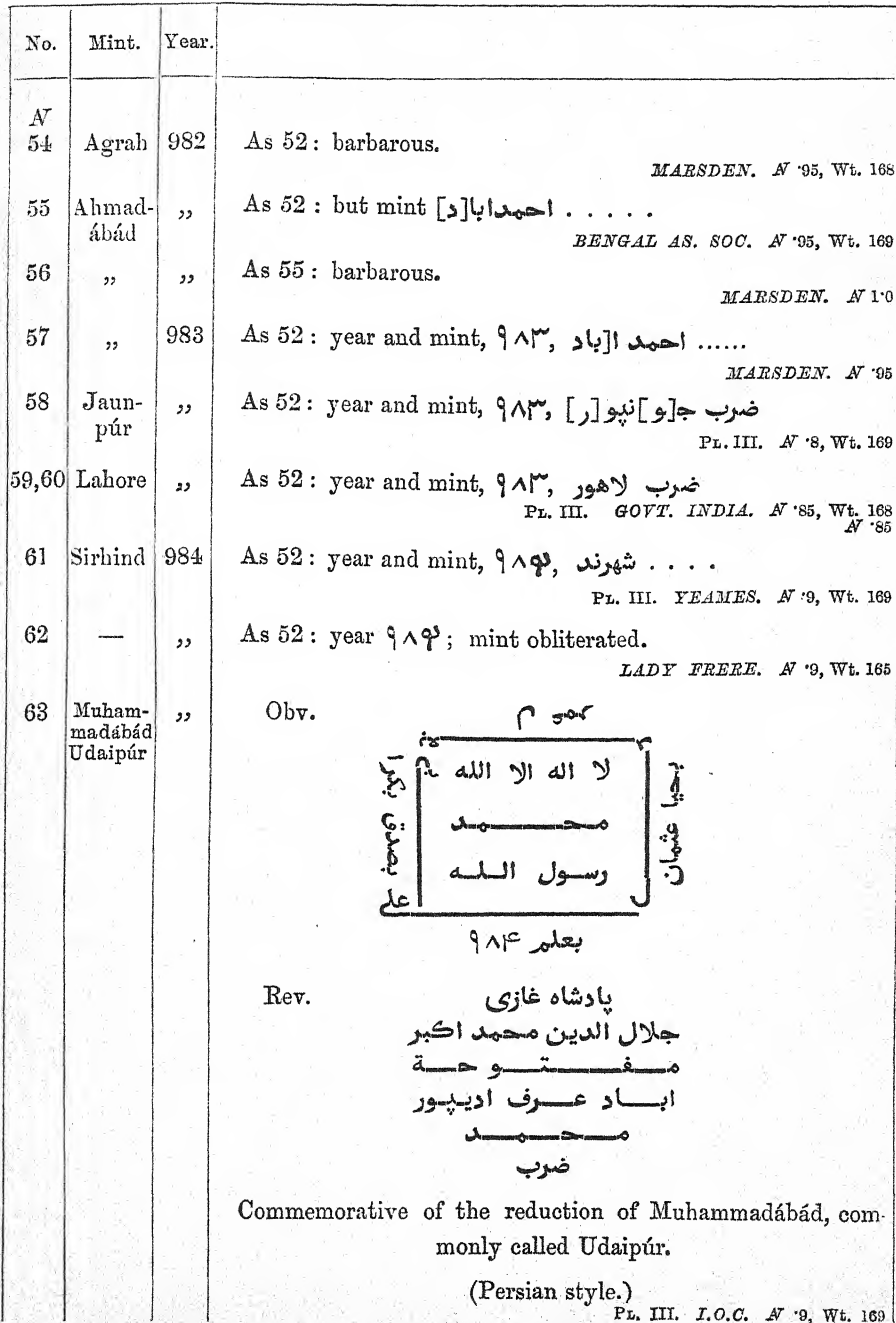 No. Mint. Year.
N
54 Agrah 982 As 52: barbarous.
MARSDEN. N ·95, Wt. 168
55 Ahmad- ,, As 52: but mint احمدابا[د] . . . . .
ábád
BENGAL AS. SOC. N ·95, Wt. 169
56 ,, ,, As 55: barbarous.
MARSDEN. N 1·0
57 ,, 983 As 52: year and mint, ۹۸۳, احمد ا[باد ......
MARSDEN. N ·95
58 Jaun- ,, As 52: year and mint, ۹۸۳, ضرب ج[و]نپو[ر]
púr
PL. III. N ·8, Wt. 169
59,60 Lahore ,, As 52: year and mint, ۹۸۳, ضرب لاهور
PL. III. GOVT. INDIA. N ·85, Wt. 168
N ·85
61 Sirhind 984 As 52: year and mint, ۹۸۴, شهرند . . . .
PL. III. YEAMES. N ·9, Wt. 169
62 — ,, As 52: year ۹۸۴; mint obliterated.
LADY FRERE. N ·9, Wt. 165
63 Muham- ,, Obv.
madábád
Udaipúr
لا اله الا الله
محمد
رسول الله
بصدق بكرا
علي
بحيا عثمان
بعلم ۹۸۴
Rev. پادشاه غازی
جلال الدين محمد اكبر
مفتوحة
اباد عرف اديپور
محمد
ضرب
Commemorative of the reduction of Muhammadábád, com-
monly called Udaipúr.
(Persian style.)
PL. III. I.O.C. N ·9, Wt. 169